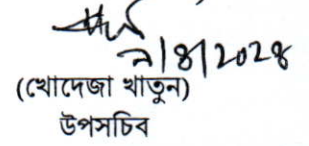 ৯/৪/২০২৪
(খোদেজা খাতুন)
উপসচিব